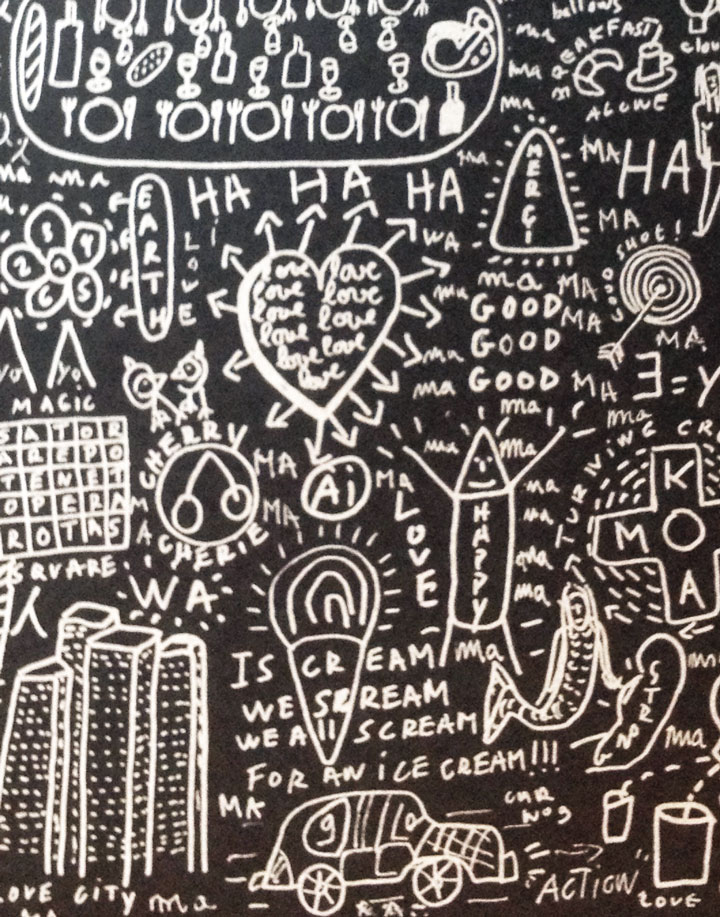 ma
BREAKFAST
ALONE
ma
ma
MERCI
MA
HA
HA HA HA
EARTH
LOVE
WA
MA
GOOD SHOT!
2 1 5
love love
love love
love love
love love
love love
love
ma
MA
GOOD
GOOD
GOOD
MA
MA
ma
ma
MA
ma
yo yo
MAGIC
SATOR
AREPO
TENET
OPERA
ROTAS
SQVARE
CHERRY
MA CHERIE
MA
MA
Ai
MA
LOVE
ma
ma
HAPPY
ma
ma
ma
ma
TURNING CR
K
M O
A
WA
IS CREAM
WE SCREAM
WE All SCREAM
FOR AN iCE CREAM!!!
ma
STRONG
ma
MA
9
CAR
No 9
ACTION
LOVE
LOVE CiTY ma